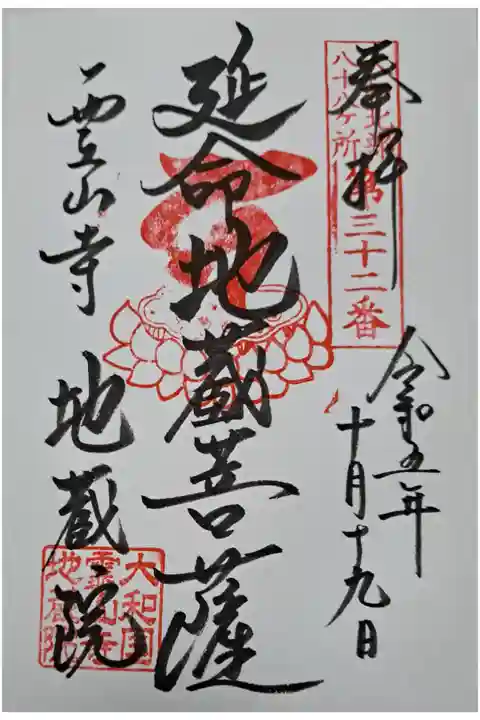 奉拝
八十八ケ所
第三十二番
令和五年
十月十九日
延命地蔵菩薩
霊山寺 地蔵院
大和国
霊山寺
地蔵院